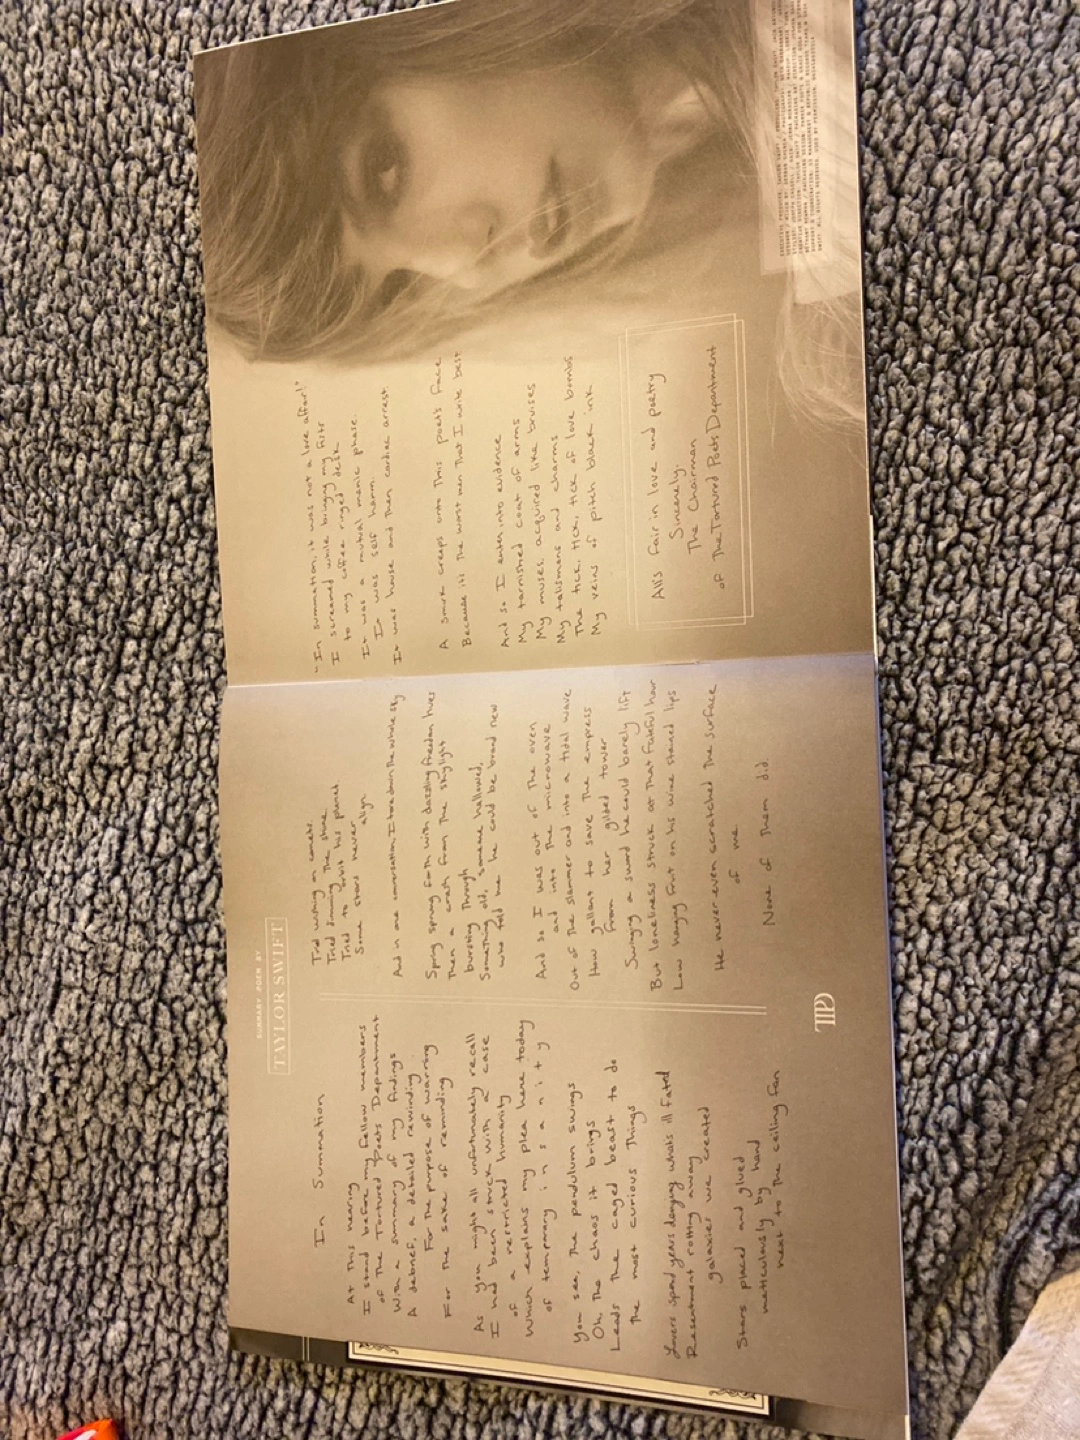 SUMMARY POEM BY
TAYLOR SWIFT
In Summation
At this hearing
I stand before my fellow members
of the Tortured Poets Department
With a summary of my findings
A debrief, a detailed rewinding
For the purpose of warning
For the sake of reminding
As you might all unfortunately recall
I had been struck with a case
of a restricted humanity
Which explains my plea here today
of temporary i n s a n i t y
You see, the pendulum swings
Oh, the chaos it brings
Leads the caged beast to do
the most curious things
Lovers spend years denying what's ill fated
Resentment rotting away
galaxies we created
Stars placed and glued
meticulously by hand
next to the ceiling fan
Tried wishing on comets.
Tried dimming the shine.
Tried to orbit his planet.
Some stars never
align.
And in one conversation, I tore down the whole sky
Spring sprung forth with dazzling freedom hues
Then a crash from the skylight
bursting through
Something old, someone hallowed,
who told me he could be brand new
And so I was out of the oven
and into the microwave
Out of the slammer and into a tidal wave
How gallant to save the empress
from her gilded tower
Swinging a sword he could barely lift
But loneliness struck at that fateful hour
Low hanging fruit on his wine stained lips
He never even scratched the surface
of me.
None of them did.
TTPD
"In summation, it was not a love affair!"
I screamed while bringing my fists
to my coffee ringed desk
It was a mutual manic phase.
It was self harm.
It was house and then cardiac arrest.
A smirk creeps onto this poet's face
Because it's the worst men that I write best.
And so I enter into evidence
My tarnished coat of arms
My muses, acquired like bruises
My talismans and charms
The tick, tick, tick of love bombs
My veins of pitch black ink
All's fair in love and poetry
Sincerely,
The Chairman
of The Tortured Poets Department